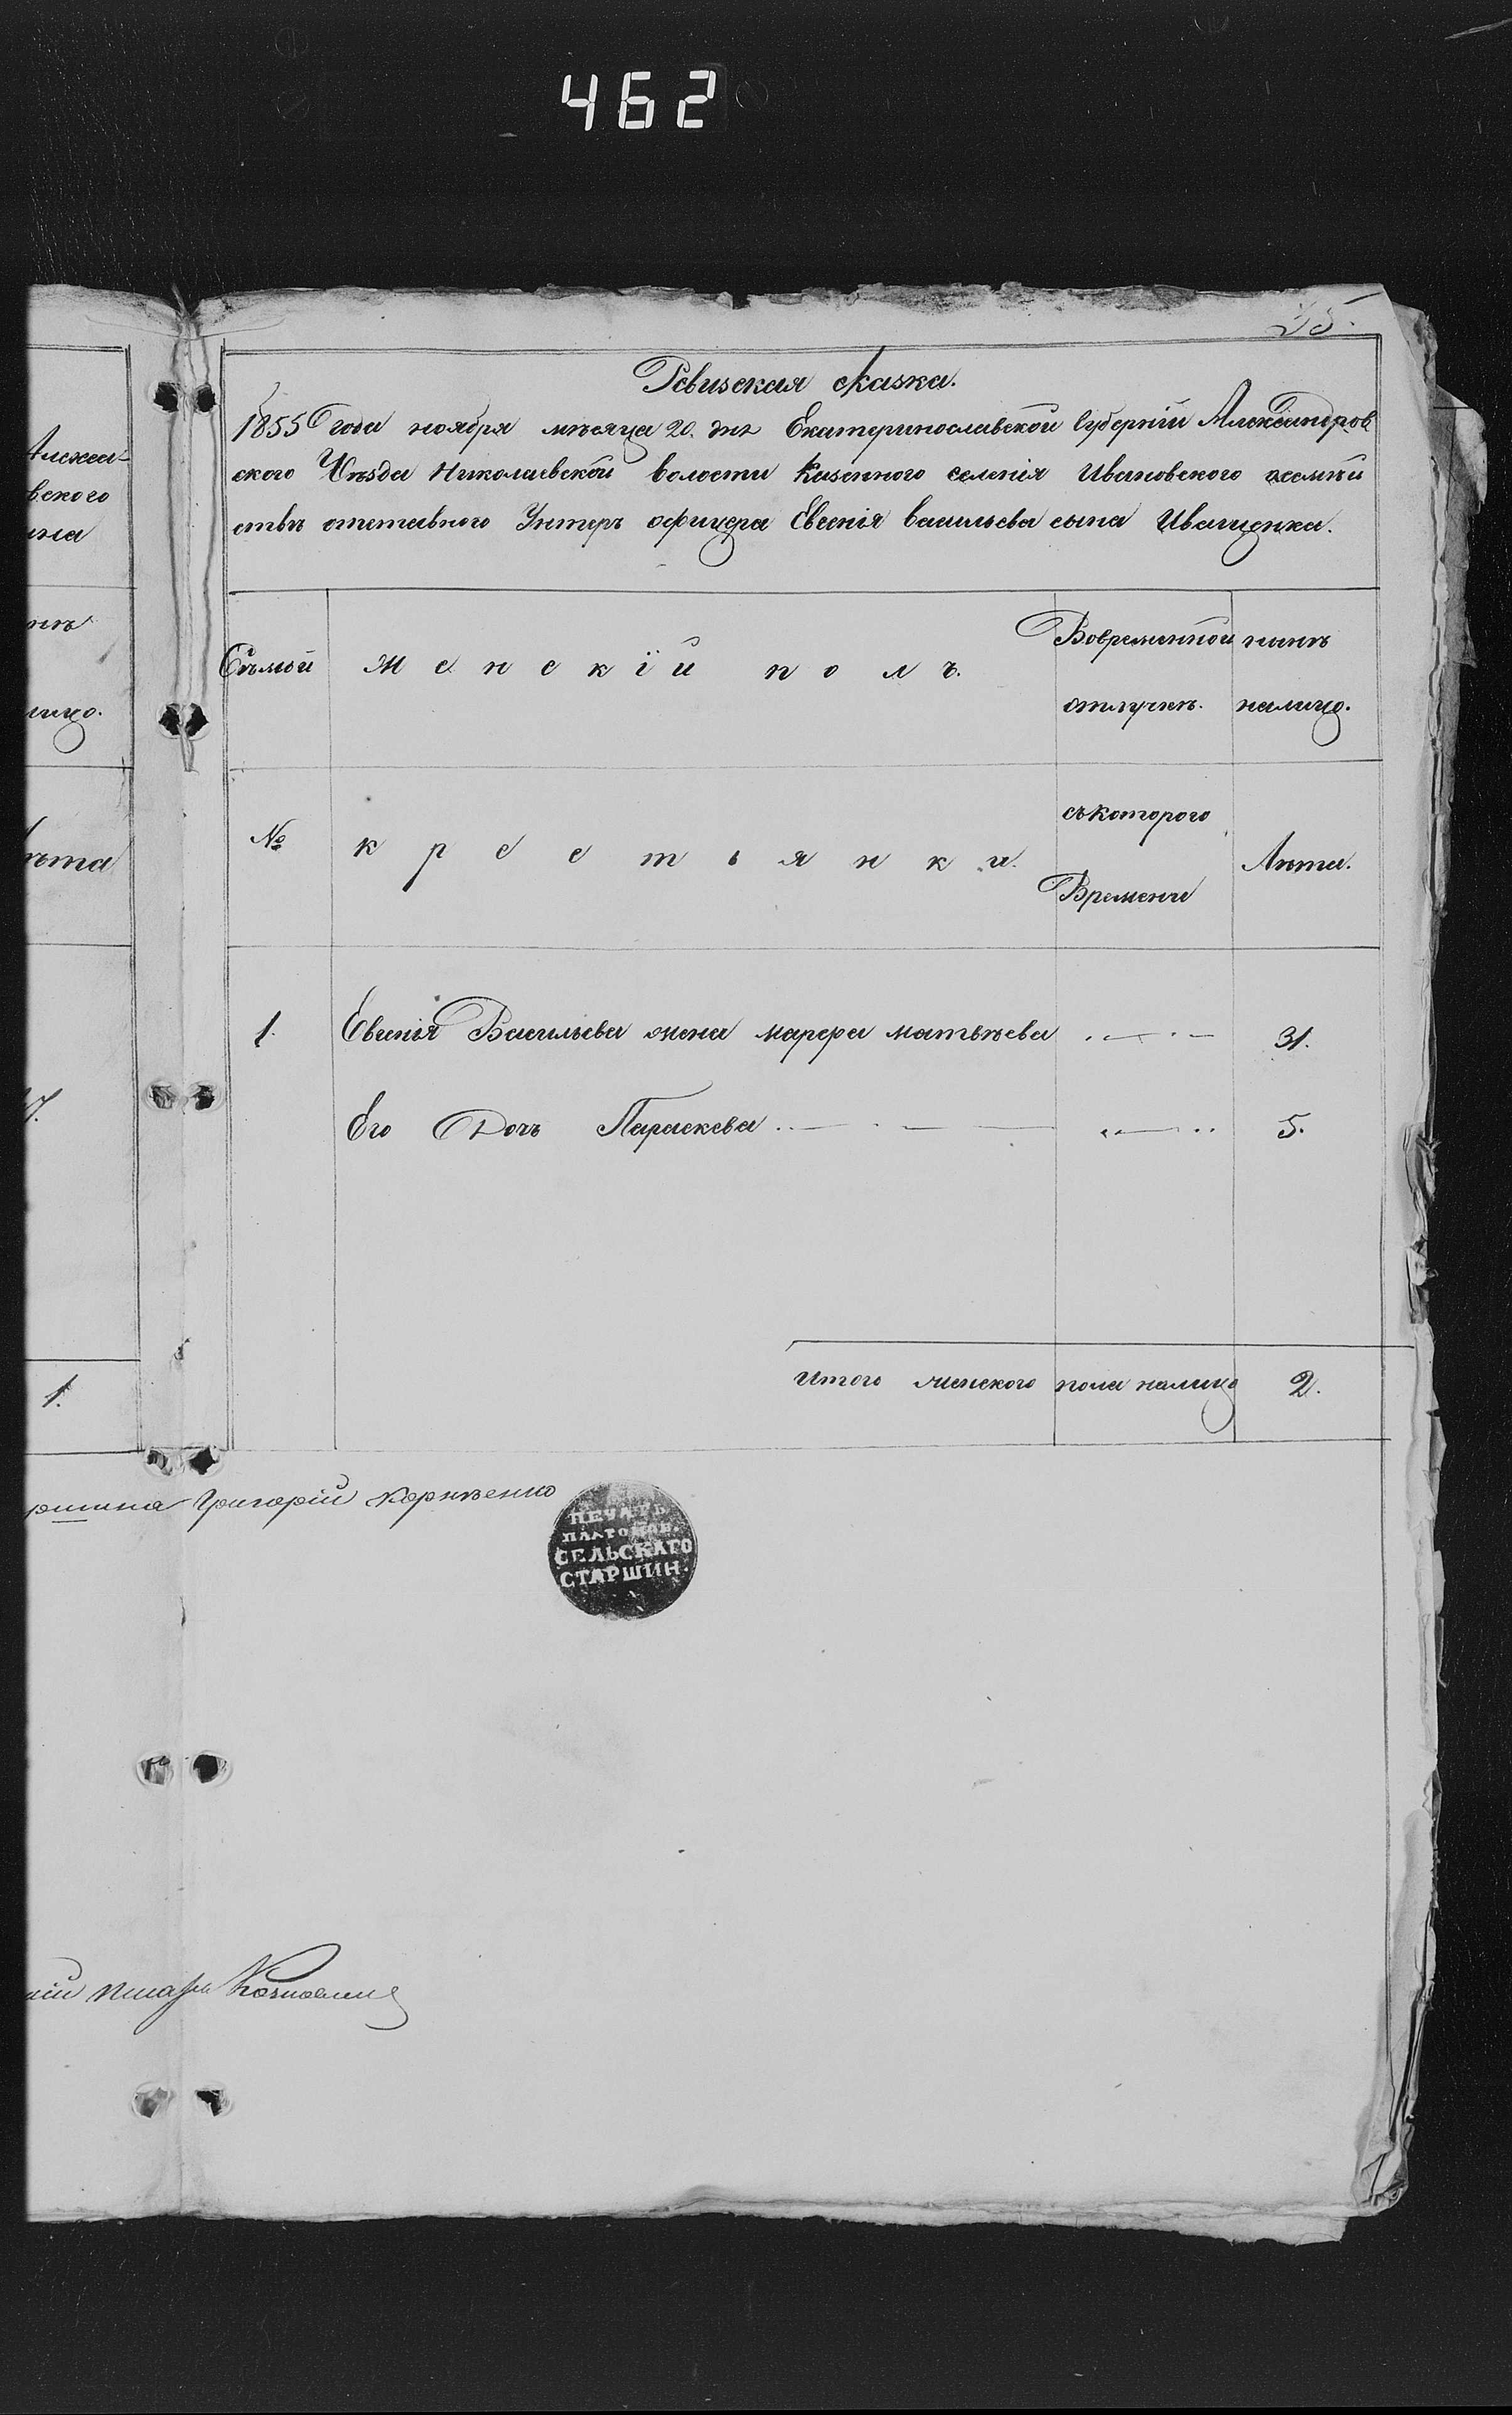 462
35.
Ревизская сказка.
1855 года ноября мѣсяца 20. дня Екатеринославской Губерніи Александров
ского Уѣзда Николаевской волости Казенного селенія Ивановского осемѣй
ствѣ отставного Унтеръ офицера Евсенія васильева сына Иващенка.
Семьи
женскій полъ.
Вовременной
отлучкѣ.
нынѣ
налицо.
№
крестьянки.
съкоторого
Времени
Лѣта.
1. Евсенія Васильева жена марфа матвѣева 31.
Его Дочь Параскева 5.
Итого женского пола налицо 2.
вского
налицо.
лѣта
1.
ршина Григорій Корнѣенко
ПЕЧАТЬ
ПЛАТОНОВ.
СЕЛЬСКАГО
СТАРШИН.
писарь